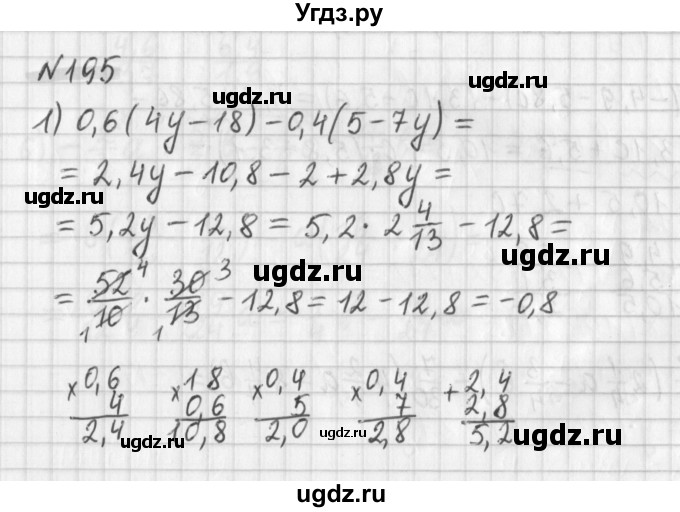 Угдз.ру
№195
1) 0,6(4y-18)-0,4(5-7y)=
=2,4y-10,8-2+2,8y=
=5,2y-12,8=5,2·2 4/13-12,8=
=52/10·30/13-12,8=12-12,8=-0,8
4 3
1 1
×0,6 ×18 ×0,4 ×0,4 +2,4
4 0,6 5 7 2,8
2,4 10,8 2,0 2,8 5,2
ugdz.ru
ugdz.ru
ugdz.ru
ugdz.ru
ugdz.ru
ugdz.ru
ugdz.ru
ugdz.ru
ugdz.ru
ugdz.ru